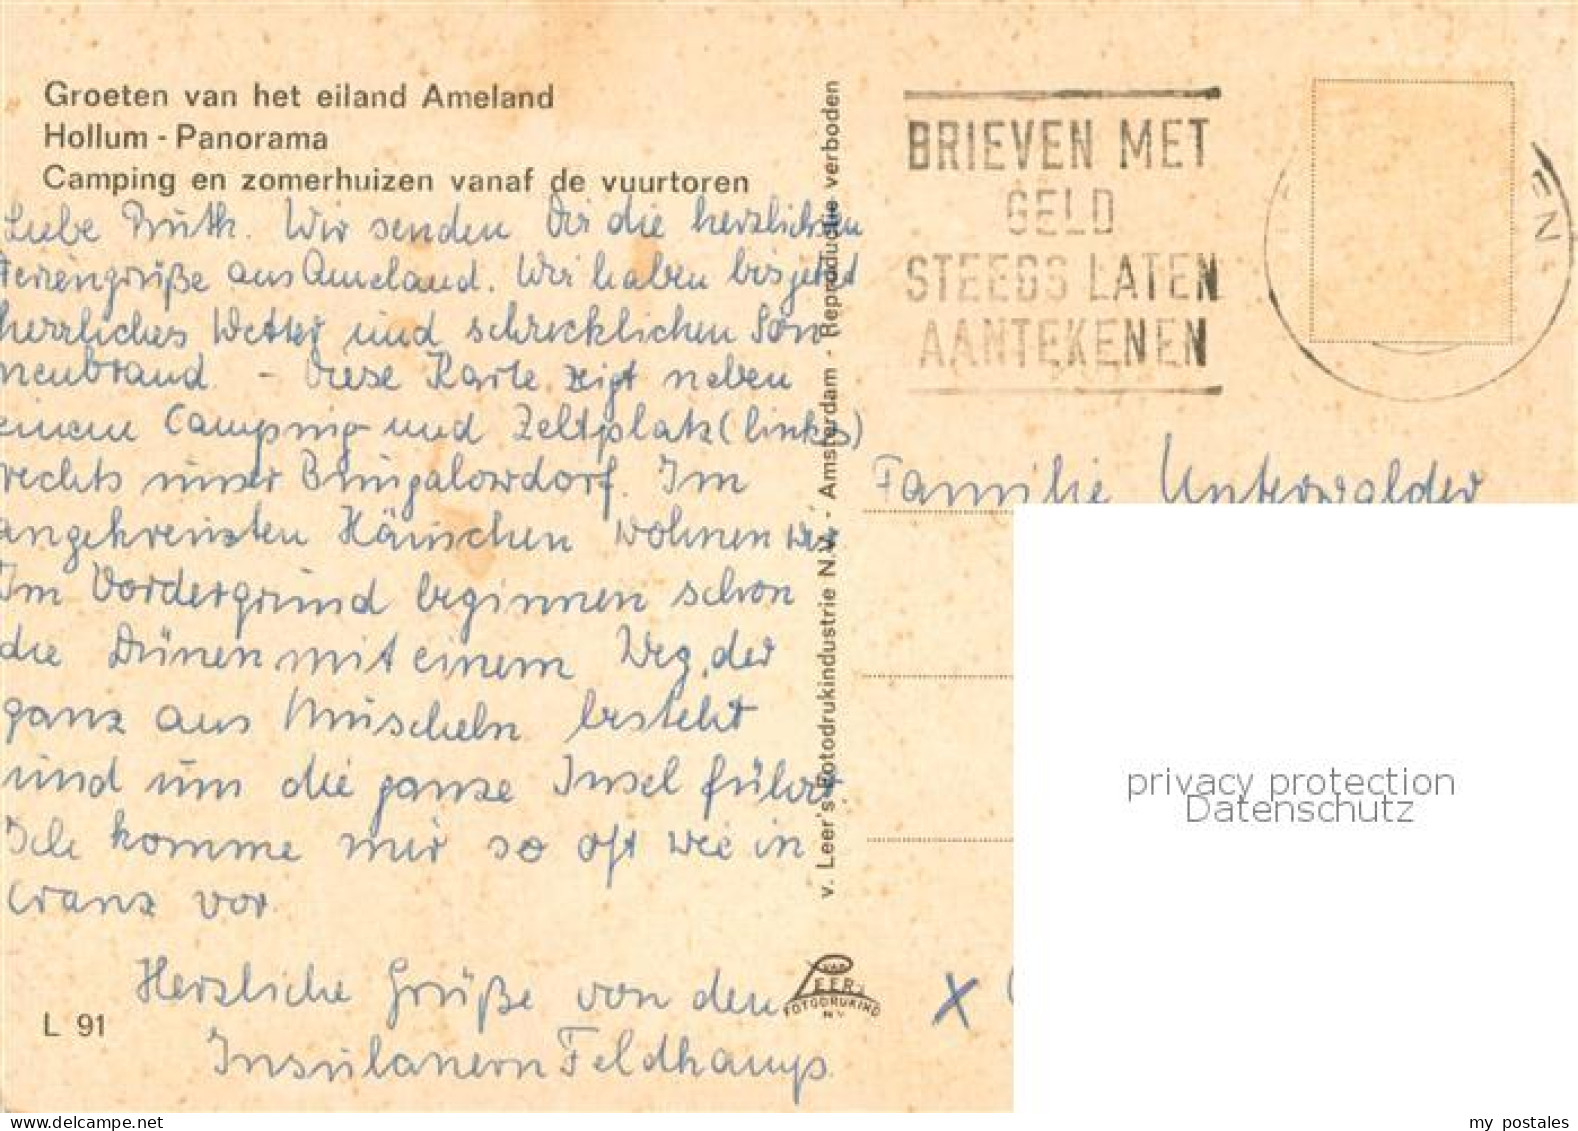 Groeten van het eiland Ameland
Hollum - Panorama
Camping en zomerhuizen vanaf de vuurtoren
Liebe Ruth. Wir senden Dir die herzlichsten
Feriengrüße aus Ameland. Wir haben bis jetzt
herrliches Wetter und schrecklichen Son
nenbrand. - Diese Karte zeigt neben
einem Camping und Zeltplatz (links)
rechts unser Bungalowdorf. Im
angekreuzten Häuschen wohnen wir
Im Vordergrund beginnen schon
die Dünen mit einem Weg, der
ganz aus Muscheln besteht
und um die ganze Insel führt
Ich komme mir so oft wie in
Cranz vor.
Herzliche Grüße von den
Insulanern Feldkamps.
L 91
v. Leer's Fotodrukindustrie N.V. - Amsterdam - Reproductie verboden
VAN
LEER'S
FOTODRUKIND
N.V.
BRIEVEN MET
GELD
STEEDS LATEN
AANTEKENEN
EN
Familie Unterwalder
X
privacy protection
Datenschutz
my postales